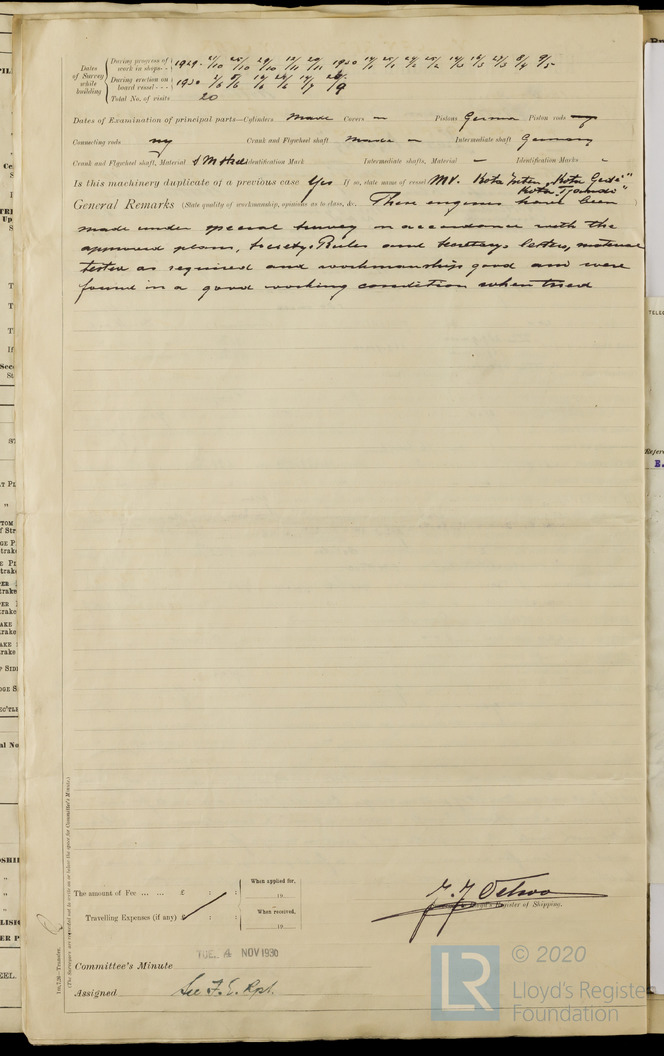 Dates of Survey while building
During progress of work in shops - - 1929. 21/10 25/10 29/10 12/11 20/11 1930 14/1 25/1 24/2 25/2 14/3 16/3 27/3 8/4 9/5
During erection on board vessel - - - 1930 2/5 5/6 19/6 24/6 14/7 26/9
Total No. of visits 20
Dates of Examination of principal parts—Cylinders Made Covers in Pistons Germa Piston rods ny
Connecting rods ny Crank and Flywheel shaft Made in Intermediate shaft Germany
Crank and Flywheel shaft, Material S M steel Identification Mark Intermediate shafts, Material – Identification Marks -
Is this machinery duplicate of a previous case Yes If so, state name of vessel MV. Kota "Inten", "Kota Gede"
"Kota Tjandi"
General Remarks (State quality of workmanship, opinions as to class, &c. These engines have been
made under special survey in accordance with the
approved plans, Society's Rules and Secretarys letters, material
tested as required and workmanship good and were
found in a good working condition when tried
1m,7,26—Transfer.
(The Surveyors are requested not to write on or below the space for Committee's Minute.)
The amount of Fee ... ... £ : :
When applied for,
19
Travelling Expenses (if any) £ : :
When received,
19
Register of Shipping.
TUE. 4 NOV 1930
Committee's Minute
Assigned See F.E. Rpt.
© 2020
LR
Lloyd's Register
Foundation